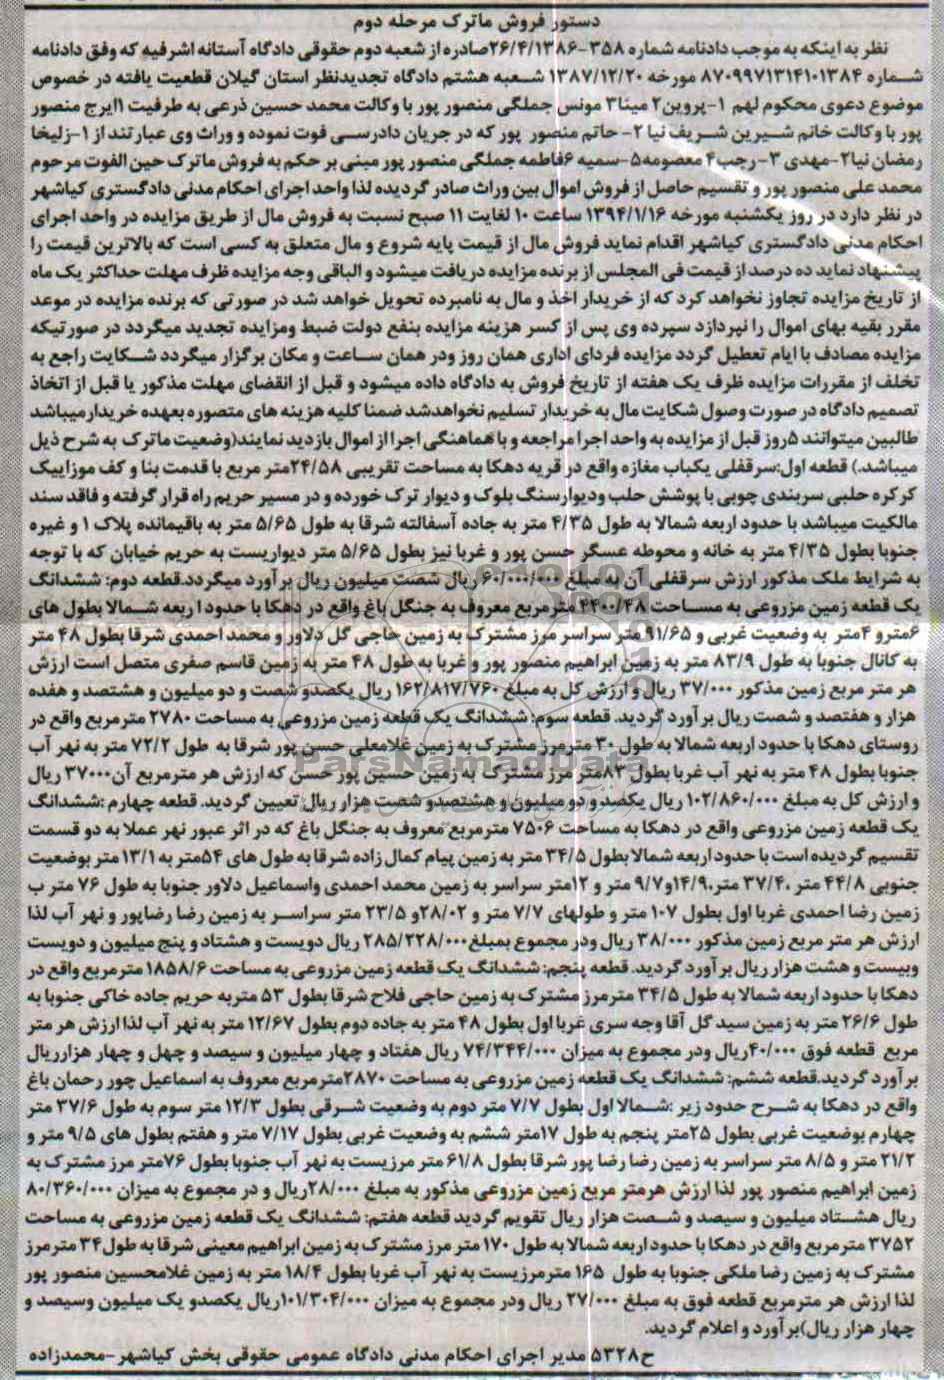 دستور فروش ماترک مرحله دوم
نظر به اینکه به موجب دادنامه شماره ۳۵۸-۲۶/۴/۱۳۸۶صادره از شعبه دوم حقوقی دادگاه آستانه اشرفیه که وفق دادنامه
شماره ۸۷۰۹۹۷۱۳۱۴۱۰۱۳۸۴ مورخه ۱۳۸۷/۱۲/۲۰ شعبه هشتم دادگاه تجدیدنظر استان گیلان قطعیت یافته در خصوص
موضوع دعوی محکوم لهم ۱-پروین۲ مینا۳ مونس جملگی منصور پور با وکالت محمد حسین ذرعی به طرفیت ۱ایرج منصور
پور با وکالت خانم شیرین شریف نیا ۲- حاتم منصور پور که در جریان دادرسی فوت نموده و وراث وی عبارتند از ۱-زلیخا
رمضان نیا۲-مهدی ۳-رجب۴ معصومه۵-سمیه ۶فاطمه جملگی منصور پور مبنی بر حکم به فروش ماترک حین الفوت مرحوم
محمد علی منصور پور و تقسیم حاصل از فروش اموال بین وراث صادر گردیده لذا واحد اجرای احکام مدنی دادگستری کیاشهر
در نظر دارد در روز یکشنبه مورخه ۱۳۹۴/۱/۱۶ ساعت ۱۰ لغایت ۱۱ صبح نسبت به فروش مال از طریق مزایده در واحد اجرای
احکام مدنی دادگستری کیاشهر اقدام نماید فروش مال از قیمت پایه شروع و مال متعلق به کسی است که بالاترین قیمت را
پیشنهاد نماید ده درصد از قیمت فی المجلس از برنده مزایده دریافت میشود و الباقی وجه مزایده ظرف مهلت حداکثر یک ماه
از تاریخ مزایده تجاوز نخواهد کرد که از خریدار اخذ و مال به نامبرده تحویل خواهد شد در صورتی که برنده مزایده در موعد
مقرر بقیه بهای اموال را نپردازد سپرده وی پس از کسر هزینه مزایده بنفع دولت ضبط ومزایده تجدید میگردد در صورتیکه
مزایده مصادف با ایام تعطیل گردد مزایده فردای اداری همان روز ودر همان ساعت و مکان برگزار میگردد شکایت راجع به
تخلف از مقررات مزایده ظرف یک هفته از تاریخ فروش به دادگاه داده میشود و قبل از انقضای مهلت مذکور یا قبل از اتخاذ
تصمیم دادگاه در صورت وصول شکایت مال به خریدار تسلیم نخواهدشد ضمنا کلیه هزینه های متصوره بعهده خریدار میباشد
طالبین میتوانند ۵روز قبل از مزایده به واحد اجرا مراجعه و با هماهنگی اجرا از اموال بازدید نمایند(وضعیت ماترک به شرح ذیل
میباشد.) قطعه اول:سرقفلی یکباب مغازه واقع در قریه دهکا به مساحت تقریبی ۲۴/۵۸متر مربع با قدمت بنا و کف موزاییک
کرکره حلبی سربندی چوبی با پوشش حلب ودیوارسنگ بلوک و دیوار ترک خورده و در مسیر حریم راه قرار گرفته و فاقد سند
مالکیت میباشد با حدود اربعه شمالا به طول ۴/۳۵ متر به جاده آسفالته شرقا به طول ۵/۶۵ متر به باقیمانده پلاک ۱ و غیره
جنوبا بطول ۴/۳۵ متر به خانه و محوطه عسگر حسن پور و غربا نیز بطول ۵/۶۵ متر دیواریست به حریم خیابان که با توجه
به شرایط ملک مذکور ارزش سرقفلی آن به مبلغ ۶۰/۰۰۰/۰۰۰ ریال شصت میلیون ریال برآورد میگردد.قطعه دوم: ششدانگ
یک قطعه زمین مزروعی به مساحت ۴۴۰۰/۴۸ مترمربع معروف به جنگل باغ واقع در دهکا با حدود اربعه شمالا بطول های
۶مترو ۴متر به وضعیت غربی و ۹۱/۶۵ متر سراسر مرز مشترک به زمین حاجی گل دلاور و محمد احمدی شرقا بطول ۴۸ متر
به کانال جنوبا به طول ۸۳/۹ متر به زمین ابراهیم منصور پور و غربا به طول ۴۸ متر به زمین قاسم صفری متصل است ارزش
هر متر مربع زمین مذکور ۳۷/۰۰۰ ریال و ارزش کل به مبلغ ۱۶۲/۸۱۷/۷۶۰ ریال یکصدو شصت و دو میلیون و هشتصد و هفده
هزار و هفتصد و شصت ریال برآورد گردید. قطعه سوم: ششدانگ یک قطعه زمین مزروعی به مساحت ۲۷۸۰ مترمربع واقع در
روستای دهکا با حدود اربعه شمالا به طول ۳۰ مترمرز مشترک به زمین غلامعلی حسن پور شرقا به طول ۷۲/۲ متر به نهر آب
جنوبا بطول ۴۸ متر به نهر آب غربا بطول ۸۲متر مرز مشترک به زمین حسین پور حسن که ارزش هر مترمربع آن۳۷۰۰۰ ریال
و ارزش کل به مبلغ ۱۰۲/۸۶۰/۰۰۰ ریال یکصدو دو میلیون و هشتصدو شصت هزار ریال تعیین گردید. قطعه چهارم :ششدانگ
یک قطعه زمین مزروعی واقع در دهکا به مساحت ۷۵۰۶ مترمربع معروف به جنگل باغ که در اثر عبور نهر عملا به دو قسمت
تقسیم گردیده است با حدود اربعه شمالا بطول ۳۴/۵ متر به زمین پیام کمال زاده شرقا به طول های ۵۴متر به ۱۳/۱ متر بوضعیت
جنوبی ۴۴/۸ متر ،۳۷/۴ متر،۱۴/۹و۹/۷ متر و ۱۲متر سراسر به زمین محمد احمدی واسماعیل دلاور جنوبا به طول ۷۶ متر ب
زمین رضا احمدی غربا اول بطول ۱۰۷ متر و طولهای ۷/۷ متر و ۲۸/۰۲و ۲۳/۵ متر سراسر به زمین رضا رضاپور و نهر آب لذا
ارزش هر متر مربع زمین مذکور ۳۸/۰۰۰ ریال ودر مجموع بمبلغ۲۸۵/۲۲۸/۰۰۰ ریال دویست و هشتاد و پنج میلیون و دویست
وبیست و هشت هزار ریال برآورد گردید. قطعه پنجم: ششدانگ یک قطعه زمین مزروعی به مساحت ۱۸۵۸/۶ مترمربع واقع در
دهکا با حدود اربعه شمالا به طول ۳۴/۵ مترمرز مشترک به زمین حاجی فلاح شرقا بطول ۵۳ متربه حریم جاده خاکی جنوبا به
طول ۲۶/۶ متر به زمین سید گل آقا وجه سری غربا اول بطول ۴۸ متر به جاده دوم بطول ۱۲/۶۷ متر به نهر آب لذا ارزش هر متر
مربع قطعه فوق ۴۰/۰۰۰ریال ودر مجموع به میزان ۷۴/۳۴۴/۰۰۰ ریال هفتاد و چهار میلیون و سیصد و چهل و چهار هزارریال
برآورد گردید.قطعه ششم: ششدانگ یک قطعه زمین مزروعی به مساحت ۲۸۷۰مترمربع معروف به اسماعیل چور رحمان باغ
واقع در دهکا به شرح حدود زیر :شمالا اول بطول ۷/۷ متر دوم به وضعیت شرقی بطول ۱۲/۳ متر سوم به طول ۳۷/۶ متر
چهارم بوضعیت غربی بطول ۲۵متر پنجم به طول ۱۷متر ششم به وضعیت غربی بطول ۷/۱۷ متر و هفتم بطول های ۹/۵ متر و
۲۱/۲ متر و ۸/۵ متر سراسر به زمین رضا رضا پور شرقا بطول ۶۱/۸ متر مرزیست به نهر آب جنوبا بطول ۷۶متر مرز مشترک به
زمین ابراهیم منصور پور لذا ارزش هرمتر مربع زمین مزروعی مذکور به مبلغ ۲۸/۰۰۰ریال و در مجموع به میزان ۸۰/۳۶۰/۰۰۰
ریال هشتاد میلیون و سیصد و شصت هزار ریال تقویم گردید قطعه هفتم: ششدانگ یک قطعه زمین مزروعی به مساحت
۳۷۵۲ مترمربع واقع در دهکا با حدود اربعه شمالا به طول ۱۷۰ متر مرز مشترک به زمین ابراهیم معینی شرقا به طول۳۴ مترمرز
مشترک به زمین رضا ملکی جنوبا به طول ۱۶۵ مترمرزیست به نهر آب غربا بطول ۱۸/۴ متر به زمین غلامحسین منصور پور
لذا ارزش هر مترمربع قطعه فوق به مبلغ ۲۷/۰۰۰ ریال ودر مجموع به میزان ۱۰۱/۳۰۴/۰۰۰ریال یکصدو یک میلیون وسیصد و
چهار هزار ریال)برآورد و اعلام گردید.
ح۵۳۲۸ مدیر اجرای احکام مدنی دادگاه عمومی حقوقی بخش کیاشهر-محمدزاده
ParsNamadData